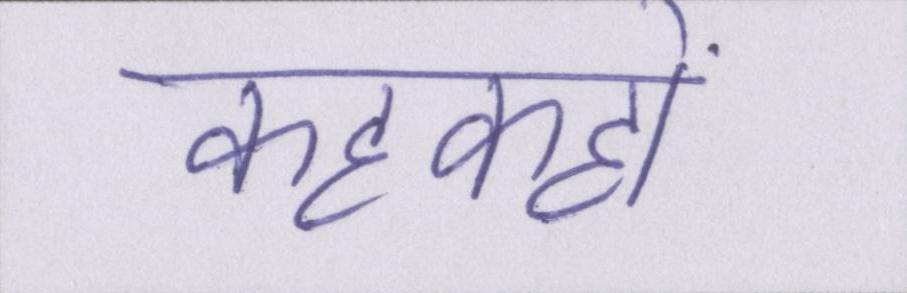 कहकहों